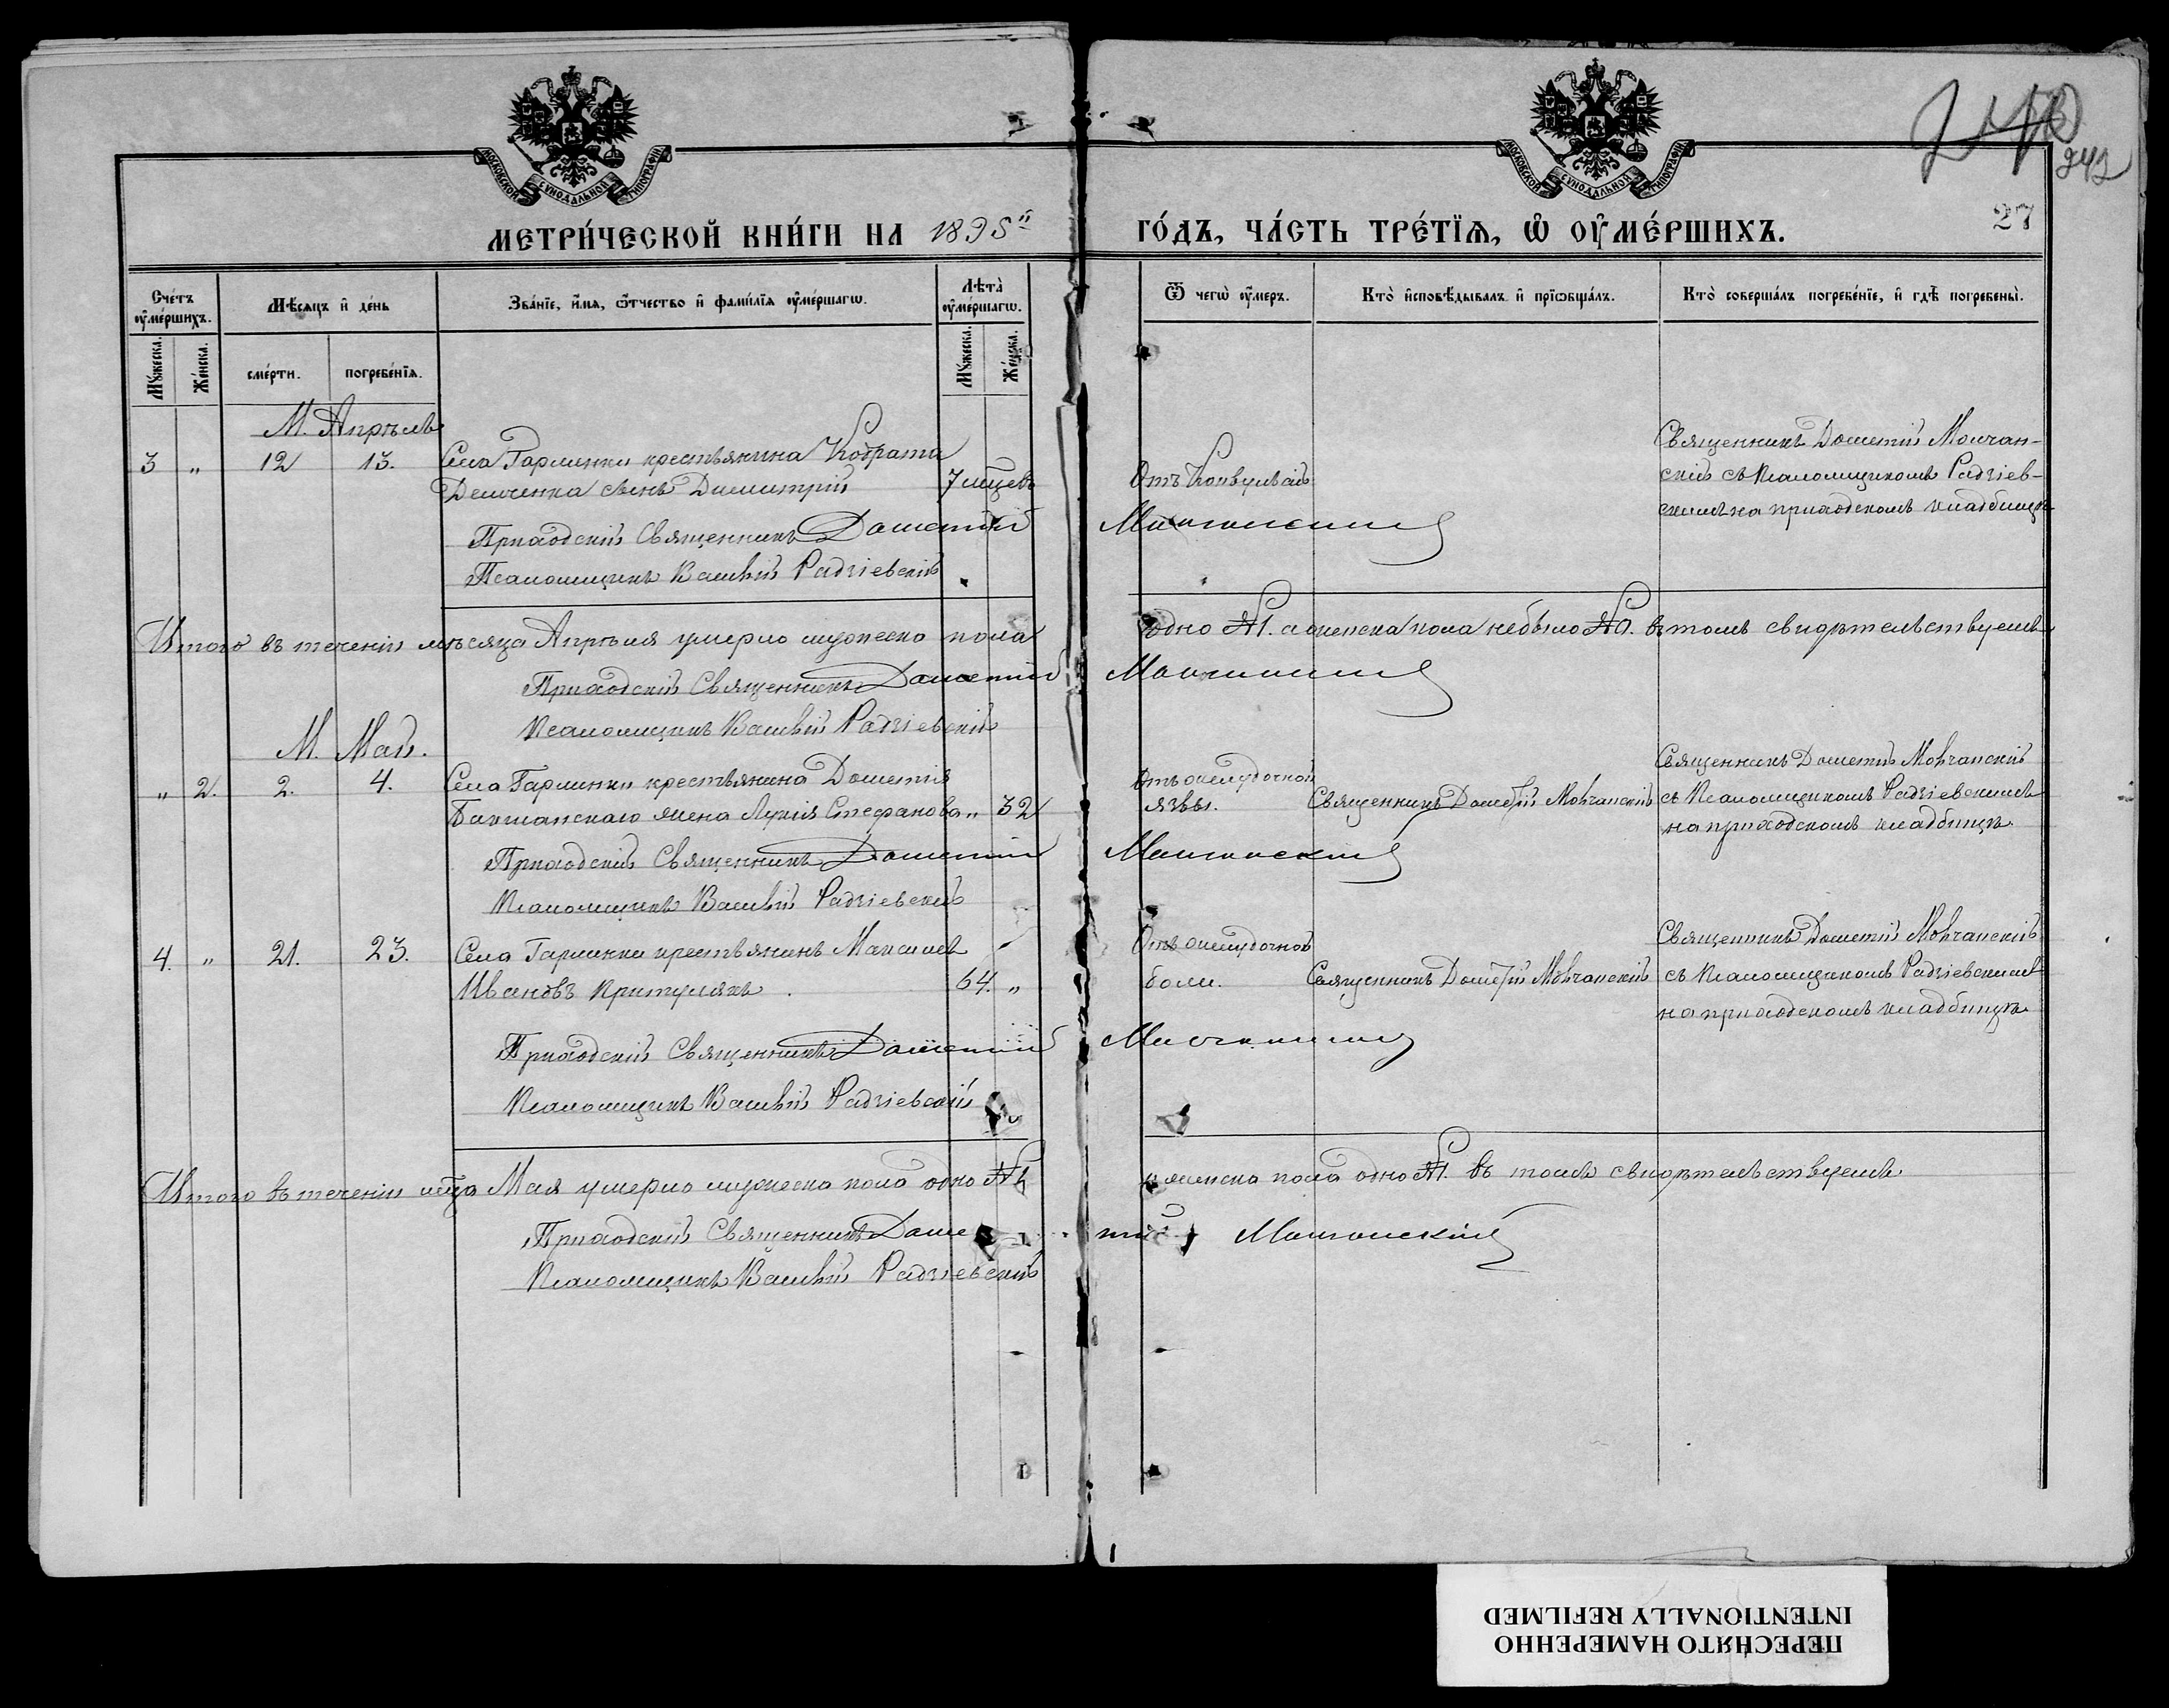 МОСКОВСКОЙ СУНОДАЛЬНОЙ ТИПОГРАФІИ
МОСКОВСКОЙ СУНОДАЛЬНОЙ ТИПОГРАФІИ
242
27
МЕТРИ́ЧЕСКОЙ КНИ́ГИ НА 1895й ГО́ДЪ, ЧА́СТЬ ТРЕ́ТЇѦ, Ѡ ОУ҆МЕ́РШИХЪ.
Сче́тъ оу҆ме́ршихъ.
Мѣ́сѧцъ и҆ де́нь
Зва́нїе, и҆́мѧ, ѻ҆́тчество и҆ фами́лїѧ оу҆ме́ршагѡ.
Лѣта̀ оу҆ме́ршагѡ.
Ѿ чегѡ̀ оу҆́меръ.
Кто̀ и҆сповѣ́дывалъ и҆ прїѡбща́лъ.
Кто̀ соверша́лъ погребе́нїе, и҆ гдѣ̀ погребены̀.
Мꙋ́жеска.
Же́нска.
сме́рти.
погребе́нїѧ.
Мꙋ́жеска.
Же́нска.
М. Апрѣль
3 " 12 13. Села Гармики крестьянина Кодрата
Демченка сынъ Димитрій 7 мцевъ
Отъ Конвульсій
Священникъ Дометій Молчан-
скій съ Псаломщикомъ Радзіев-
скимъ на приходскомъ кладбищѣ
Приходскій Священникъ Дометій Молчанскій
Псаломщикъ Василій Радзіевскій
Итого въ теченіи мѣсяца Апрѣля умерло мужеска пола одно №1. а женска пола небыло №0. въ томъ свидѣтельствуемъ
Приходскій Священникъ Дометій Молчанскій
Псаломщикъ Василій Радзіевскій
М. Май.
" 2. 2. 4. Села Гармики крестьянина Дометія
Бакшанскаго жена Лукія Стефанова " 32
Отъ желудочной
язвы.
Священникъ Дометій Молчанскій
Священникъ Дометій Молчанскій
съ Псаломщикомъ Радзіевскимъ
на приходскомъ кладбищѣ
Приходскій Священникъ Дометій Молчанскій
Псаломщикъ Василій Радзіевскій
4. " 21. 23. Села Гармики крестьянинъ Максимъ
Ивановъ Притулякъ. 64. "
Отъ желудочной
боли.
Священникъ Дометій Молчанскій
Священникъ Дометій Молчанскій
съ Псаломщикомъ Радзіевскимъ
на приходскомъ кладбищѣ
Приходскій Священникъ Дометій Молчанскій
Псаломщикъ Василій Радзіевскій
Итого въ теченіи мца Мая умерло мужеска пола одно №1 и женска пола одно №1. въ томъ свидѣтельствуемъ
Приходскій Священникъ Дометій Молчанскій
Псаломщикъ Василій Радзіевскій
ПЕРЕСНЯТО НАМЕРЕННО
INTENTIONALLY REFILMED